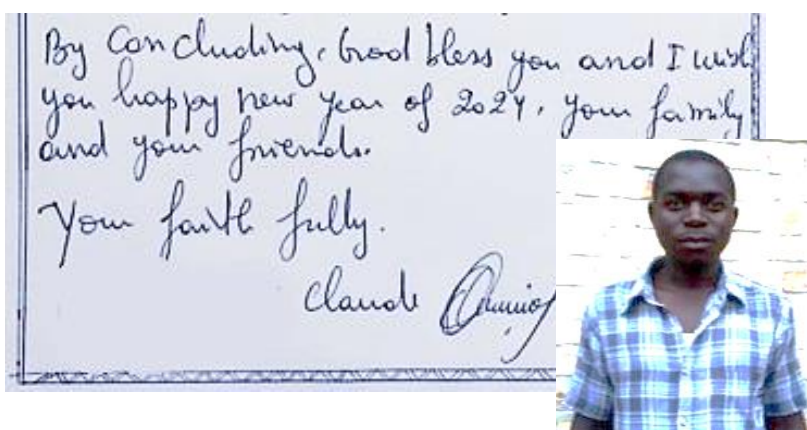 By Concluding, God bless you and I wish
you happy new year of 2024, your family
and your friends.
Your faith fully.
Claude